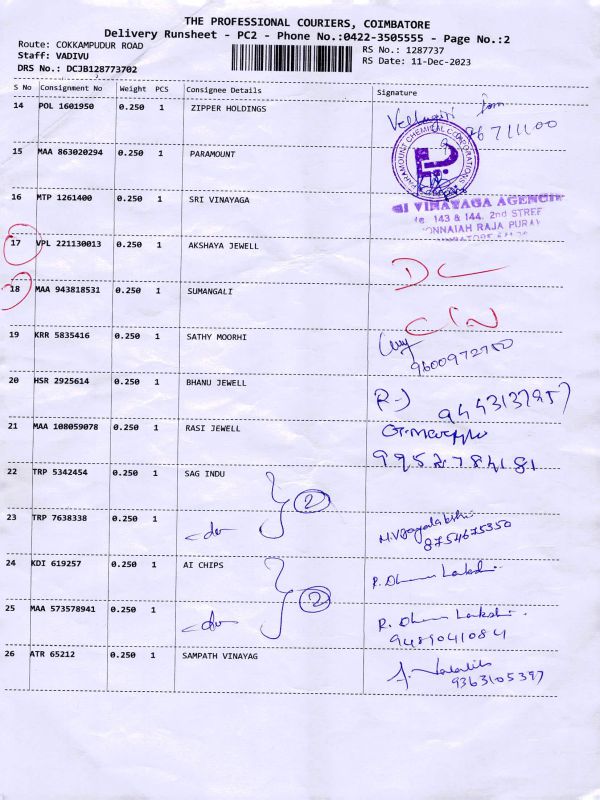 THE PROFESSIONAL COURIERS, COIMBATORE
Delivery Runsheet - PC2 - Phone No.:0422-3505555 - Page No.:2
Route: COKKAMPUDUR ROAD
RS No.: 1287737
Staff: VADIVU
RS Date: 11-Dec-2023
DRS No.: DCJB128773702
S No Consignment No Weight PCS Consignee Details Signature
14 POL 1601950 0.250 1 ZIPPER HOLDINGS
15 MAA 863020294 0.250 1 PARAMOUNT
PARAMOUNT CHEMICAL CORPORATION
16 MTP 1261400 0.250 1 SRI VINAYAGA
VINAYAGA AGENCIE
143 & 144, 2nd STREE
ONNAIAH RAJA PURA
17 VPL 221130013 0.250 1 AKSHAYA JEWELL
DC
18 MAA 943818531 0.250 1 SUMANGALI
19 KRR 5835416 0.250 1 SATHY MOORHI
20 HSR 2925614 0.250 1 BHANU JEWELL
21 MAA 108059078 0.250 1 RASI JEWELL
9952784181
22 TRP 5342454 0.250 1 SAG INDU
2
23 TRP 7638338 0.250 1
8754675350
24 KDI 619257 0.250 1 AI CHIPS
2
25 MAA 573578941 0.250 1
9489041084
26 ATR 65212 0.250 1 SAMPATH VINAYAG
9363105397